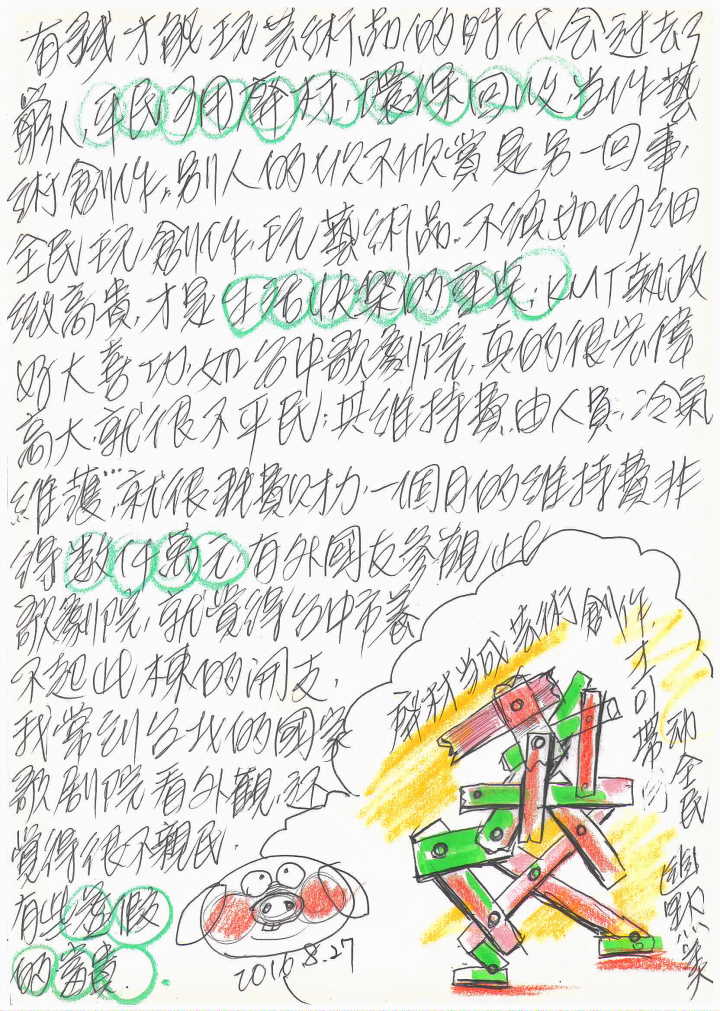 有錢才能玩芸術品的时代会过去了
窮人,平民可用幹材,環保回收,当作藝
術創作,別人的欣不欣賞是另一回事,
全民玩創作,玩藝術品.不須如何細
緻高貴,才是生活快樂的重点,KMT執政
好大喜功,如台中歌劇院,真的很宏偉
高大,就很不平民;其維持費,由人員.冷氣
維護…就很耗費財力,一個月的維持費非
得數仟萬元,有外國友參觀此
歌劇院,就覺得台中市養
不起此棟的開支,
我常到台北的國家
歌剧院看外觀,还
覺得很不親民.
有些虛假
的富貴.
2016.8.27
發材当成芸術創作,
才可帶
动全民
幽默